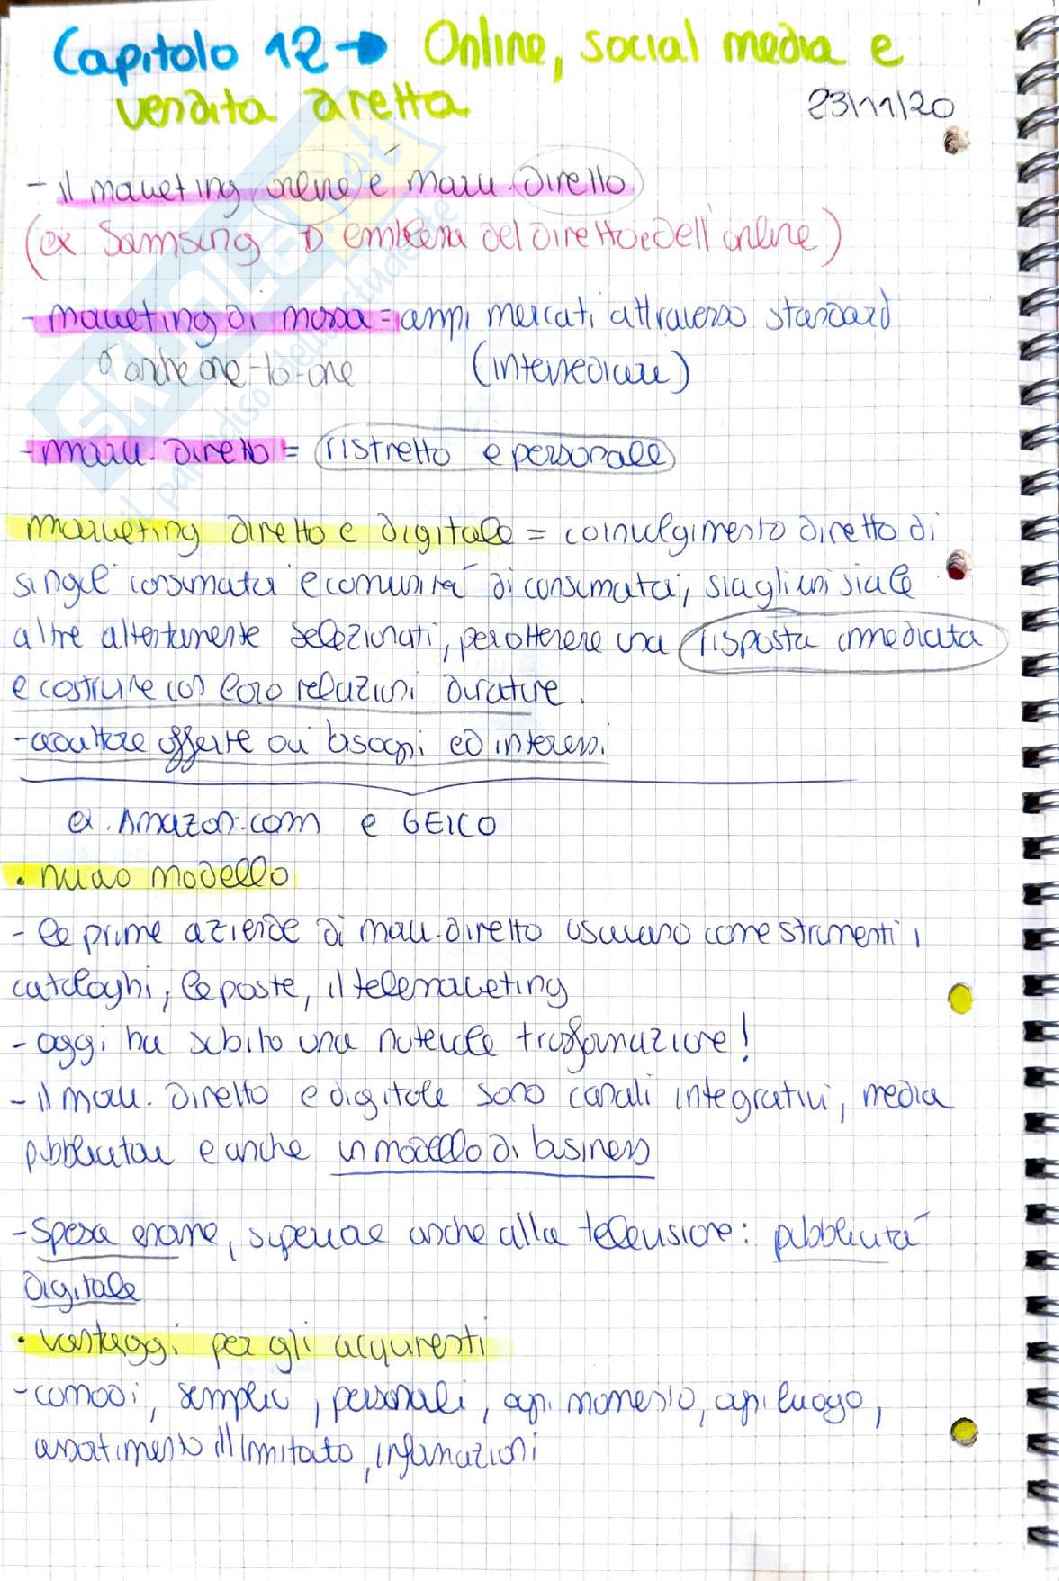 Capitolo 12 → Online, social media e
vendita diretta 23/11/20
- il marketing online è mark. diretto
(ex Samsung è emblema del diretto e dell'online)
- marketing di massa = ampi mercati attraverso standard
anche one-to-one (intermediare)
- mark. diretto = ristretto e personale
marketing diretto e digitale = coinvolgimento diretto di
singoli consumatori e comunità di consumatori, sia gli uni sia le
altre attentamente selezionati, per ottenere una risposta immediata
e costruire con loro relazioni durature.
- adattare offerte ai bisogni ed interessi
ex. Amazon.com e GEICO
• nuovo modello
- le prime aziende di mark. diretto usavano come strumenti i
cataloghi, le poste, il telemarketing
- oggi ha subito una notevole trasformazione!
- il mark. diretto e digitale sono canali integrativi, media
pubblicitari e anche un modello di business
- spesa enorme, superiore anche alla televisione: pubblicità
digitale
• vantaggi per gli acquirenti
- comodi, semplici, personali, ogni momento, ogni luogo,
assortimento illimitato, informazioni